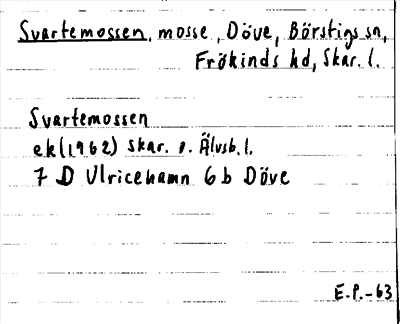 Svartemossen, mosse, Döve, Börstigs sn,
Frökinds hd, Skar. l.
Svartemossen
ek(1962) Skar. o. Älvsb. l.
7 D Ulricehamn 6 b Döve
E.P.-63